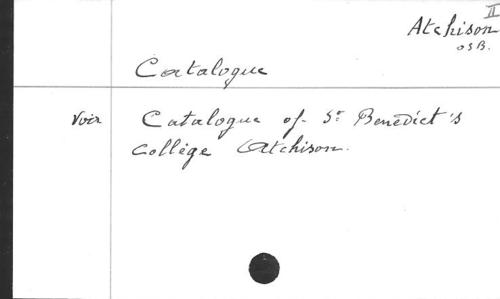 II
Atchison
OSB.
Catalogue
Voir Catalogue of St Benedict's
Collège Atchison.